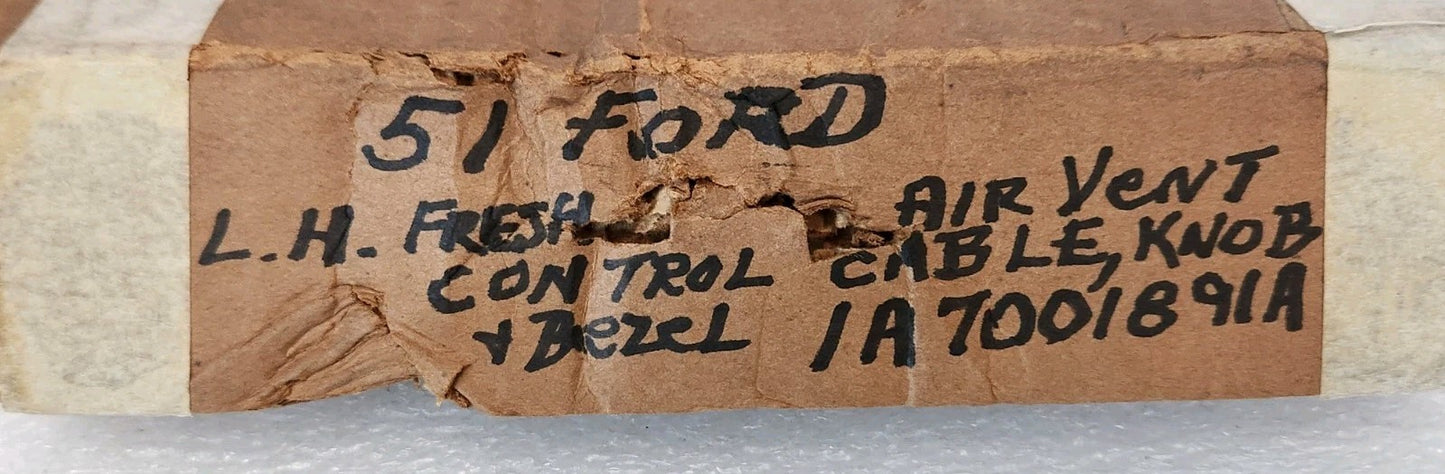 51 FORD
L.H. FRESH AIR VENT
CONTROL CABLE, KNOB
+ BEZEL 1A7001891A